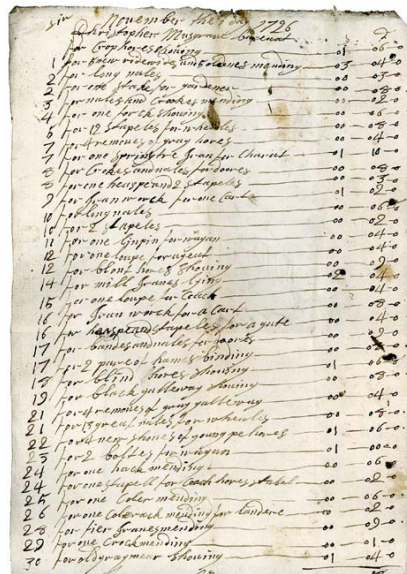 Sir November the 1 day 1726
Christopher Musgrave
for Crop hores Shouing 01 06-0
1 for mending 03 04-0
2 for long nales 00 03-0
2 for one stake for gardener 00 08-0
3 for nales and Crookes mending 00 02-0
4 for one forck Showing 00
6 for 12 Stapeles for wheales 00 08-0
7 for 4 removes of gray hores 00 04-0
7 for one Springtre Iran for Chariat 01 10-0
8 for Crokes and nales for doores 00 08-0
8 for one heaspe and 2 Stapeles 00 03-0
9 for Iran worck for one Cart 01 02-0
10 for long nales 00 06-0
10 for 2 Stapeles 00 02-0
11 for one linpin for wagan 00 04-0
12 for one loupe for 00 04-0
12 for blont hores Shouing 00
14 for mill Iranes 04-0
15 for one loupe for Coach 00 04-0
16 for Iran worck for a Cart 00 08-0
16 for haspe and Stapeles for a gate 00 04-0
17 for bandes and nales for doores 00
17 for 2 pare of hames binding 00
18 for blind hores Shouing 01 06
19 for black gallaway Shouing
21 for 4 removes of gray gallaway 00 04-0
21 for 13 great nales for wheales 00 08-0
22 for 4 new shoues of young 01 06-0
23 for 2 boltes for wagan 01 00-0
24 for one hack mending 00 06
24 for one stapell for Coach hores Stabel 00 02-0
25 for one Coler mending 00 06-0
26 for one Colerack mending for 00 02-0
28 for fier Iranes mending 00
29 for one Crock mending 00 01-0
30 for old gray mear Shouing 01 04-0